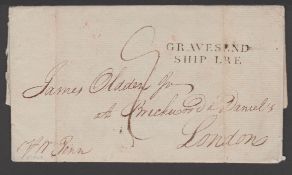 GRAVESEND
SHIP LRE
James Oldden Jr
at Brickwood & Daniel's
London
Wm Penn